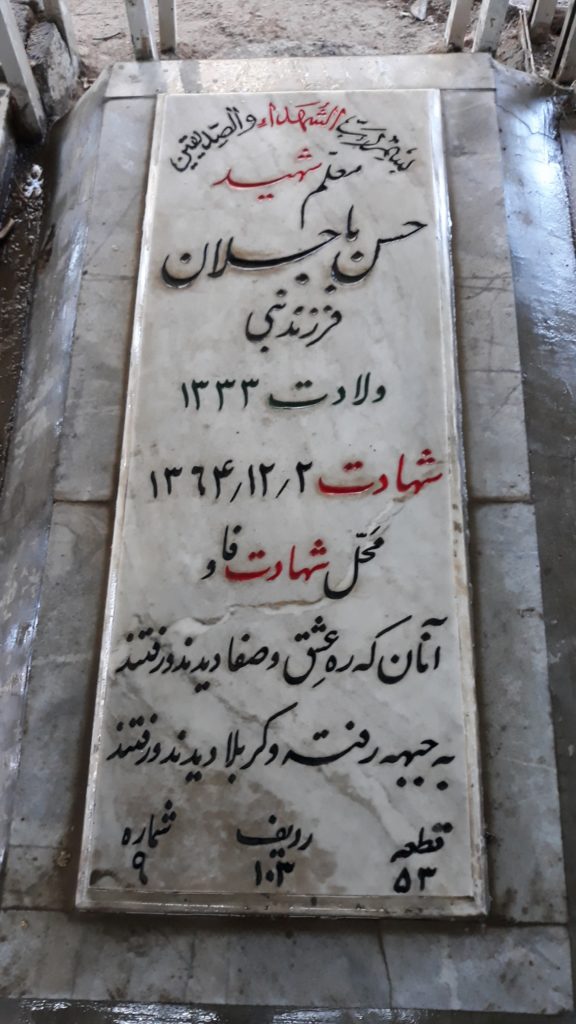 بسم رب الشهداء والصدیقین
معلم شهید
حسن باجلان
فرزند نبی
ولادت ۱۳۳۳
شهادت ۱۳۶۴/۱۲/۲
محل شهادت فاو
آنان که ره عشق و صفا دیدند و رفتند
به جبهه رفته و کربلا دیدند و رفتند
قطعه ردیف شماره
۵۳ ۱۰۳ ۹